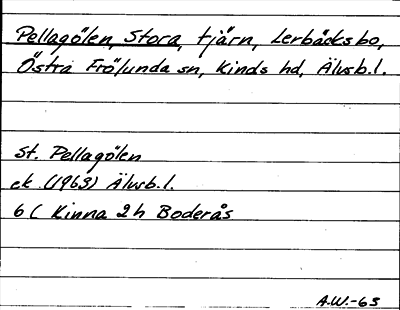 Pellagölen, Stora, tjärn, Lerbäcksbo,
Östra Frölunda sn, Kinds hd, Älvsb.l.
St. Pellagölen
ek (1963) Älvsb.l.
6 ( Kinna 2h Boderås
A.W.-63